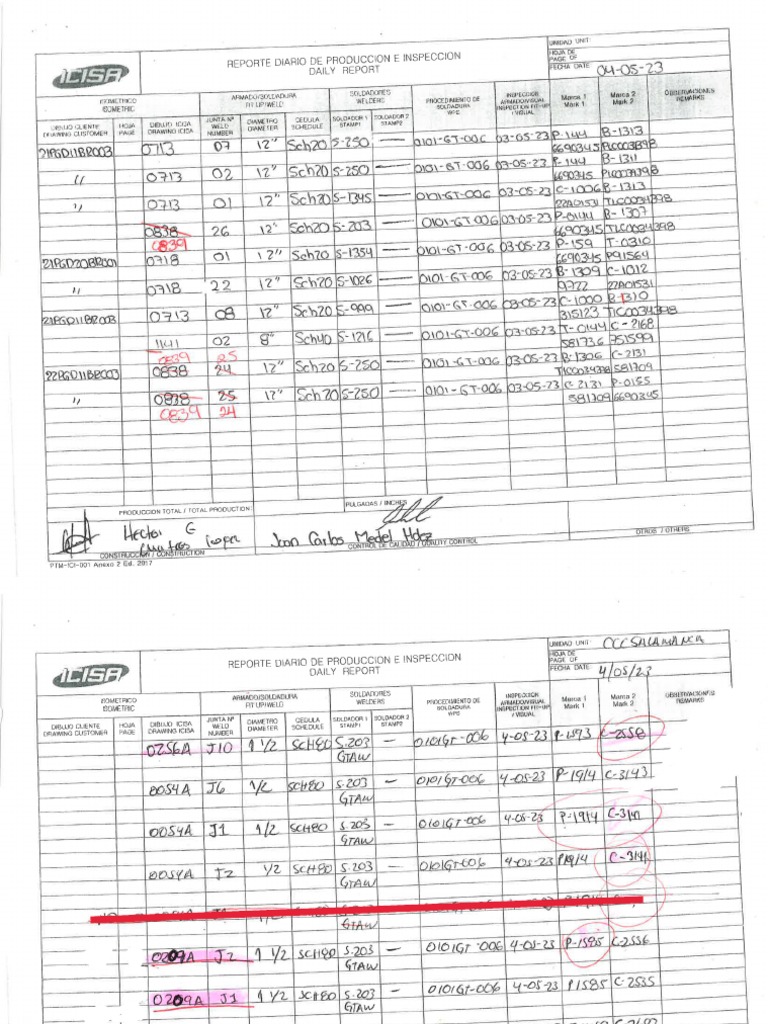 ICISA
REPORTE DIARIO DE PRODUCCION E INSPECCION
DAILY REPORT
UNIDAD UNIT:
HOJA DE
PAGE OF
FECHA DATE: 04-05-23
ISOMETRICO
ISOMETRIC
ARMADO/SOLDADURA
FIT UP/WELD
SOLDADORES
WELDERS
PROCEDIMIENTO DE
SOLDADURA
WPS
INSPECCION
ARMADO/VISUAL
INSPECTION FIT-UP
/ VISUAL
Marca 1
Mark 1
Marca 2
Mark 2
OBSERVACIONES
REMARKS
DIBUJO CLIENTE
DRAWING CUSTOMER
HOJA
PAGE
DIBUJO ICISA
DRAWING ICISA
JUNTA Nº
WELD
NUMBER
DIAMETRO
DIAMETER
CEDULA
SCHEDULE
SOLDADOR 1
STAMP1
SOLDADOR 2
STAMP2
21PGD11BR003 0713 07 12" Sch20 S-250 — 0101-GT-006 03-05-23 P-144 B-1313
6690345 PLC003898
" 0713 02 12" Sch20 S-250 — 0101-GT-006 03-05-23 P-144 B-1311
6690345
" 0713 01 12" Sch20 S-1345 — 0101-GT-006 03-05-23 C-1006 B-1313
22A0151 TLC0034898
0838 26 12" Sch20 S-203 — 0101-GT-006 03-05-23 P-0144 B-1307
0839 6690345 TLC0034898
21PGD20BR001 0718 01 12" Sch20 S-1354 — 0101-GT-006 03-05-23 P-159 T-0310
6690345 P91564
" 0718 22 12" Sch20 S-1026 — 0101-GT-006 03-05-23 B-1309 C-1012
9722 22A01531
21PGD11BR003 0713 08 12" Sch20 S-999 — 0101-GT-006 03-05-23 C-1000 B-1310
315123 TLC0034898
1141 02 8" Sch40 S-1216 — 0101-GT-006 03-05-23 T-0144 C-2168
581736 751599
0839 25
22PGD11BR003 0838 24 12" Sch20 S-250 — 0101-GT-006 03-05-23 B-1306 C-2131
TLC0034898 581709
" 0838 25 12" Sch20 S-250 — 0101-GT-006 03-05-23 C-2131 P-0155
0839 24 581709 6690345
PRODUCCION TOTAL / TOTAL PRODUCTION
PULGADAS / INCHES
Hector G
Juan Carlos Medel Hdez
CONSTRUCCION / CONSTRUCTION
CONTROL DE CALIDAD / QUALITY CONTROL
OTROS / OTHERS
PTM-ICI-001 Anexo 2 Ed. 2017
ICISA
REPORTE DIARIO DE PRODUCCION E INSPECCION
DAILY REPORT
UNIDAD UNIT: CCC SALAMANCA
HOJA DE
PAGE OF
FECHA DATE: 4/05/23
ISOMETRICO
ISOMETRIC
ARMADO/SOLDADURA
FIT UP/WELD
SOLDADORES
WELDERS
PROCEDIMIENTO DE
SOLDADURA
WPS
INSPECCION
ARMADO/VISUAL
INSPECTION FIT-UP
/ VISUAL
Marca 1
Mark 1
Marca 2
Mark 2
OBSERVACIONES
REMARKS
DIBUJO CLIENTE
DRAWING CUSTOMER
HOJA
PAGE
DIBUJO ICISA
DRAWING ICISA
JUNTA Nº
WELD
NUMBER
DIAMETRO
DIAMETER
CEDULA
SCHEDULE
SOLDADOR 1
STAMP1
SOLDADOR 2
STAMP2
0256A J10 1 1/2 SCH80 S-203 — 0101GT-006 4-05-23 P-1593 C-2558
GTAW
0054A J6 1/2 SCH80 S-203 — 0101GT-006 4-05-23 P-1914 C-3143
GTAW
0054A J1 1/2 SCH80 S-203 — 0101GT-006 4-05-23 P-1914 C-3141
GTAW
0054A J2 1/2 SCH80 S-203 — 0101GT-006 4-05-23 P1914 C-3141
GTAW
GTAW
0209A J2 1 1/2 SCH80 S-203 — 0101GT-006 4-05-23 P-1585 C-2556
GTAW
0209A J1 1 1/2 SCH80 S-203 — 0101GT-006 4-05-23 P1585 C-2535
GTAW